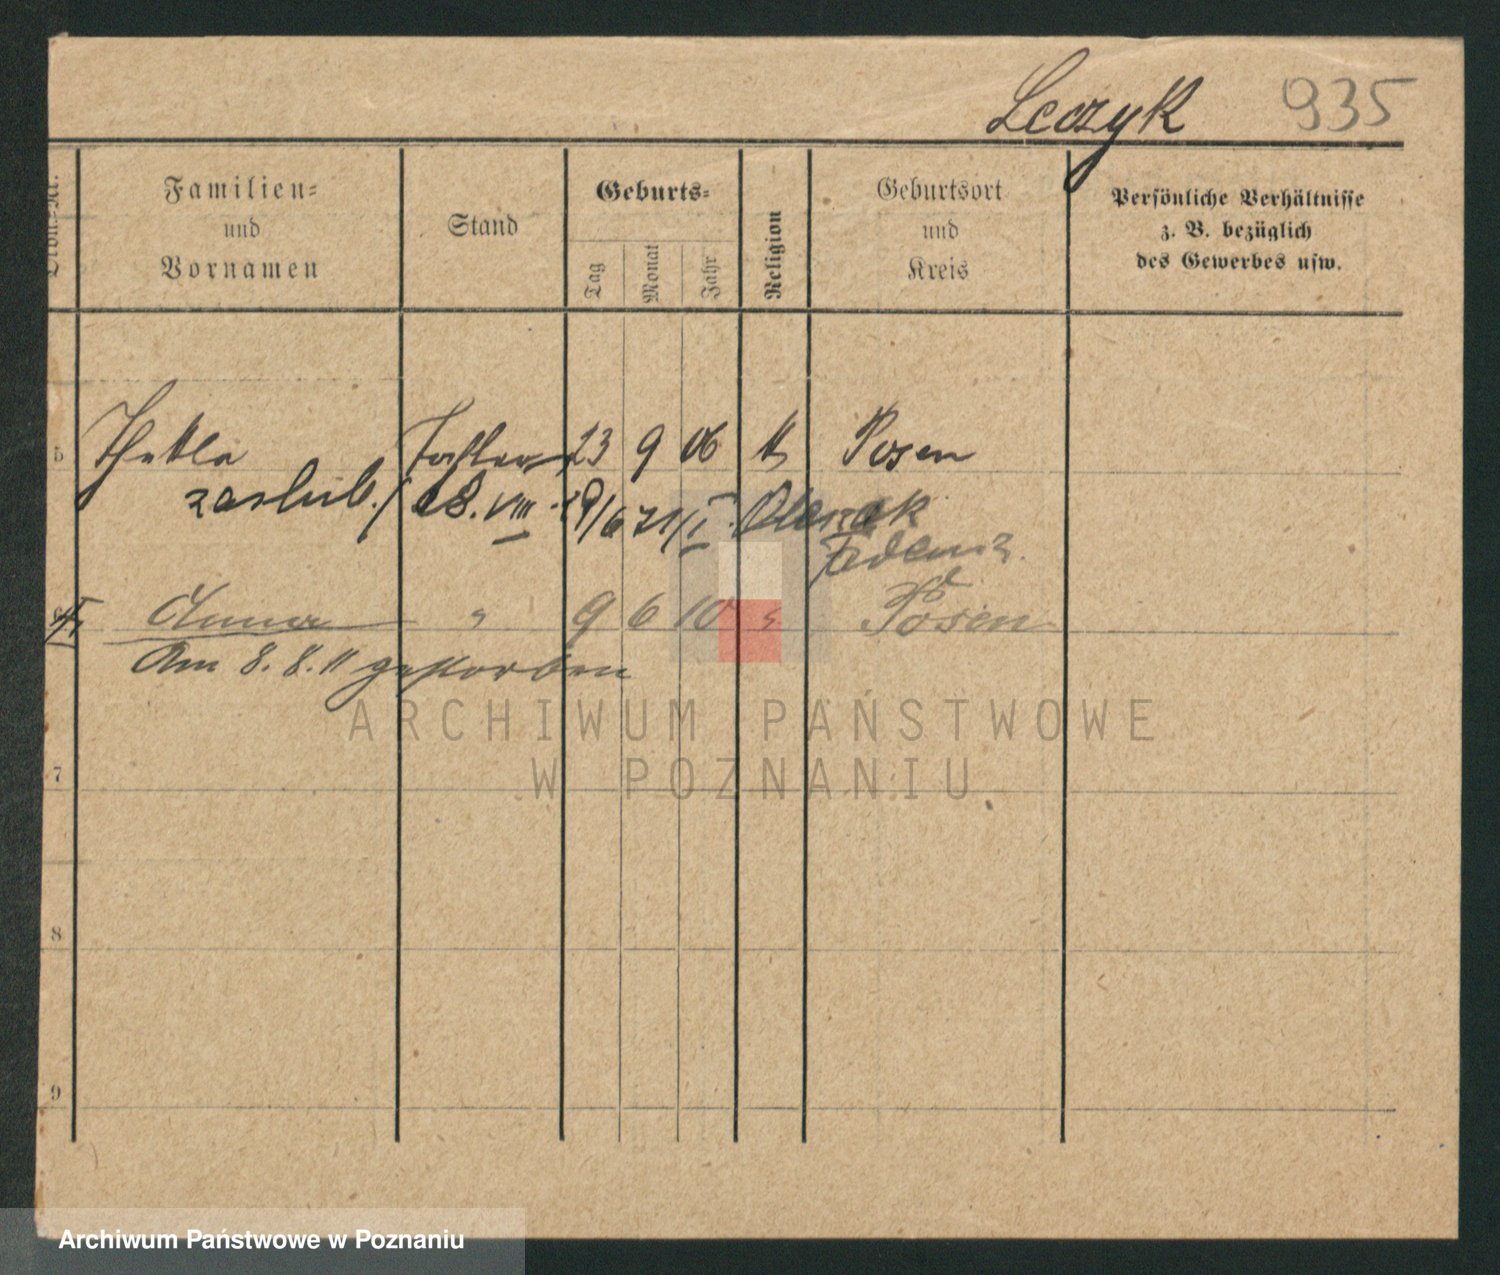 Leczyk 935
Familien-
und
Vornamen
Stand
Geburts-
Tag
Monat
Jahr
Religion
Geburtsort
und
Kreis
Persönliche Verhältnisse
z. B. bezüglich
des Gewerbes usw.
5 Thekla Tochter 23 9 06 k Posen
zaślub. 28. VIII.
Anna " 9 6 10 " Posen
Am 8. 8. 11 gestorben
ARCHIWUM PAŃSTWOWE
W POZNANIU
7
8
9
Archiwum Państwowe w Poznaniu